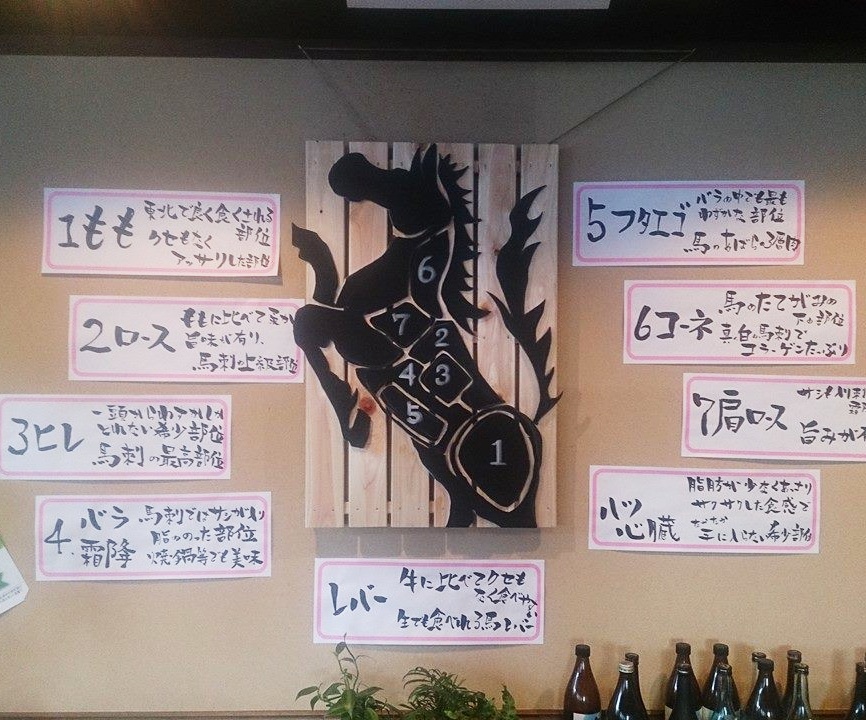 1もも
東北で良く食くされる
部位
クセもなく
アッサリした部位
2ロース
ももに比べて
旨味が有り、
馬刺の上級部位
3ヒレ
一頭から
とれない希少部位
馬刺の最高部位
4.バラ
霜降
馬刺ではサシが入り
脂ののった部位
焼、鍋等でも美味
レバー
牛に比べてクセも
なく食べやすい
生でも食べれる馬レバー
6
7
2
4
3
5
1
5フタエゴ
バラの中でも最も
わずかな部位
馬のあばらの3層肉
6コーネ
馬のたてがみの
下の部位
真白な馬刺で
コラーゲンたっぷり
7肩ロース
旨みが
心臓
脂肪が少なくあっさり
サクサクした食感で
なかなか
手に入らない希少部位